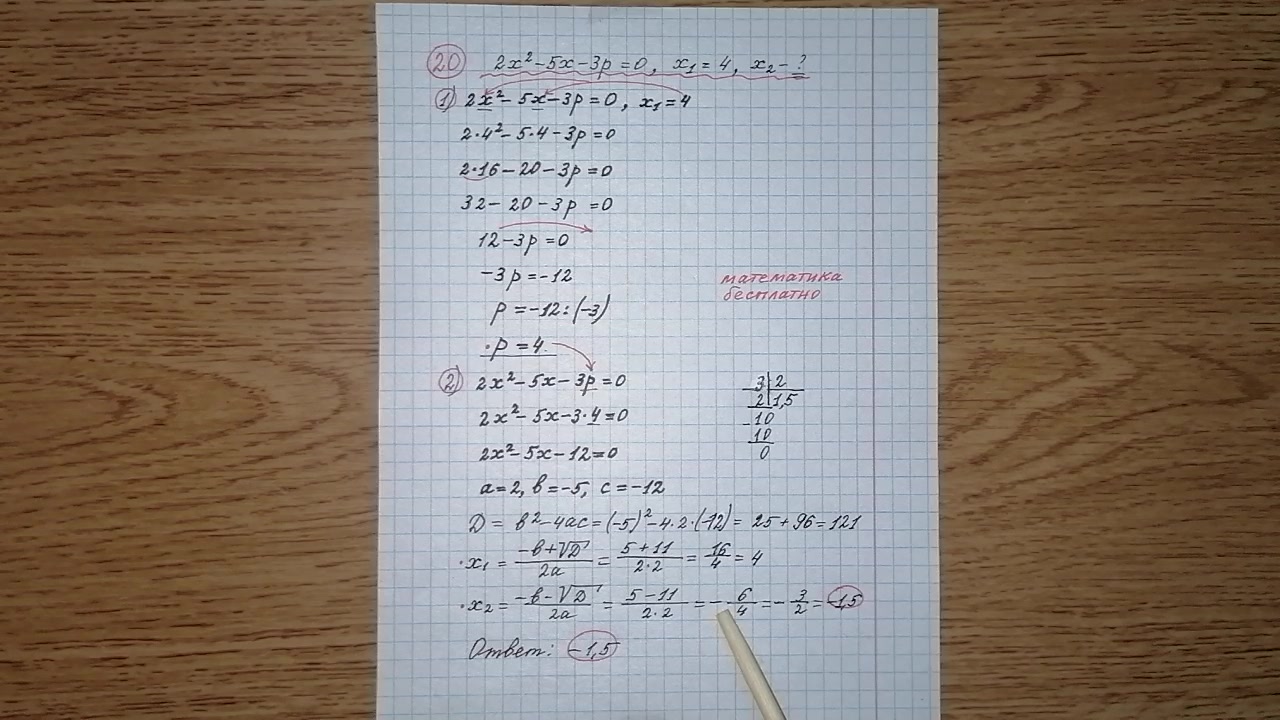 20 2x²-5x-3p=0, x₁=4, x₂-?
1) 2x²-5x-3p=0, x₁=4
2·4²-5·4-3p=0
2·16-20-3p=0
32-20-3p=0
12-3p=0
-3p=-12
p=-12:(-3)
p=4
математика
бесплатно
2) 2x²-5x-3p=0
2x²-5x-3·4=0
2x²-5x-12=0
a=2, b=-5, c=-12
3|2
2|1,5
-10
10
0
D=b²-4ac=(-5)²-4·2·(-12)=25+96=121
·x₁=(-b+√D)/2a=(5+11)/2·2=16/4=4
·x₂=(-b-√D)/2a=(5-11)/2·2=-6/4=-3/2=-1,5
Ответ: -1,5